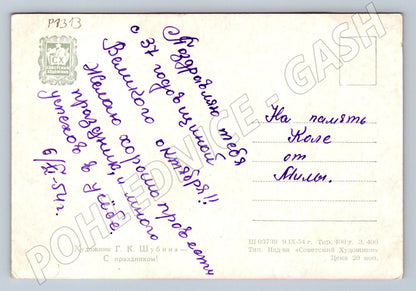 P1313
СХ
Поздравляю тебя
с 37 годовщиной
Великого октября!!
Желаю хорошо провести
праздник, и много
успехов в учёбе.
6/XI-54 г.
На память
Коле
от
Милы.
Художник Г. К. Шубина—
С праздником!
Ш 03739 9.IX-54 г. Тир. 400 т. З. 400
Тип. Изд-ва «Советский Художник»
Цена 20 коп.
POHLEDNICE - GASH